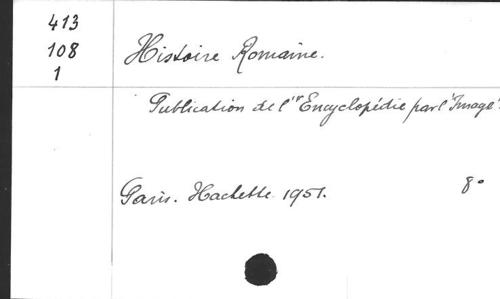 413
108
1
Histoire Romaine.
Publication de l'"Encyclopédie par l'Image".
Paris. Hachette. 1951.
8°